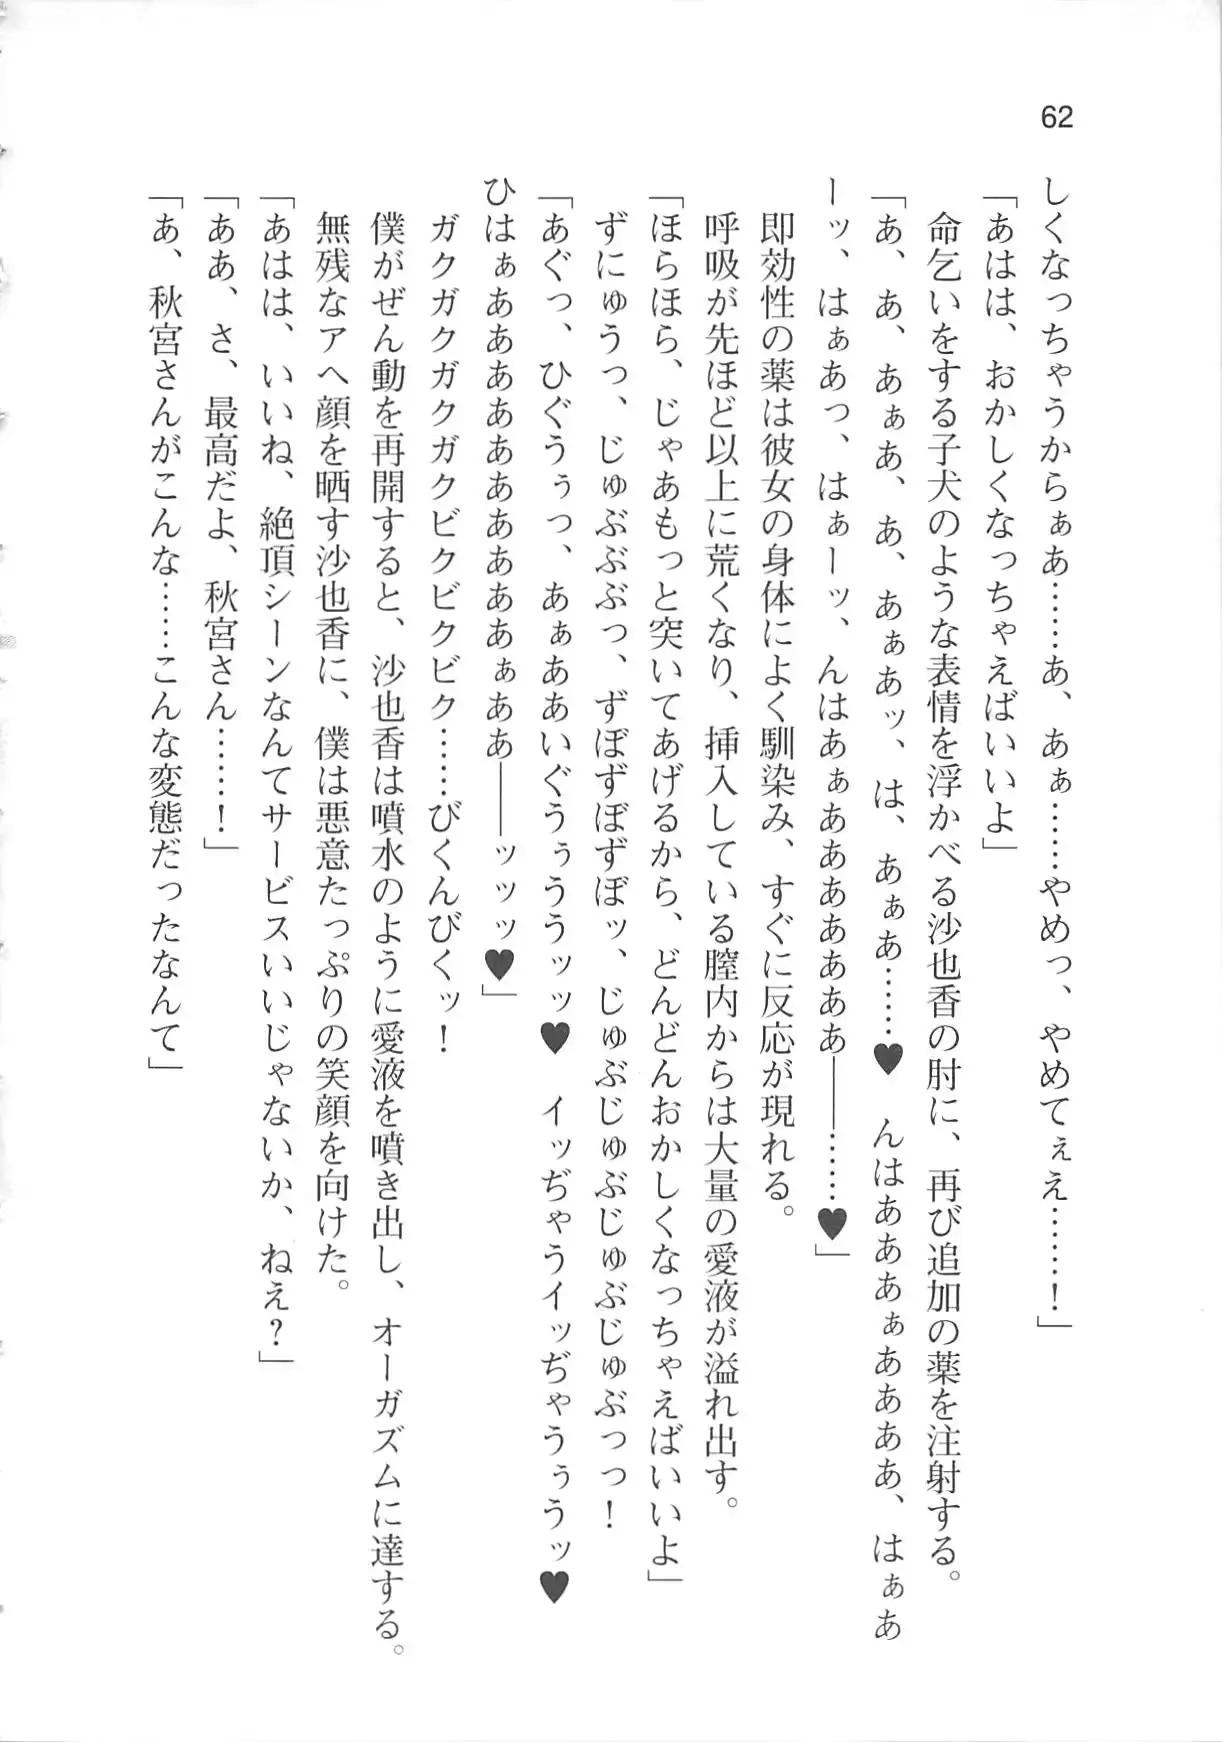 62
しくなっちゃうからぁあ……あ、あぁ……やめっ、やめてぇえ………！」
「あはは、おかしくなっちゃえばいいよ」
命乞いをする子犬のような表情を浮かべる沙也香の肘に、再び追加の薬を注射する。
「あ、あ、あぁあ、あ、あぁあッ、は、あぁあ……♥　んはあああぁああああ、はぁあ
ーッ、はぁあっ、はぁーッ、んはあぁあああああああ――……♥」
即効性の薬は彼女の身体によく馴染み、すぐに反応が現れる。
呼吸が先ほど以上に荒くなり、挿入している膣内からは大量の愛液が溢れ出す。
「ほらほら、じゃあもっと突いてあげるから、どんどんおかしくなっちゃえばいいよ」
ずにゅうっ、じゅぶぶぶっ、ずぼずぼずぼッ、じゅぶじゅぶじゅぶじゅぶっっ！
「あぐっ、ひぐうぅっ、あぁああいぐうぅううッッ♥　イッぢゃうイッぢゃうぅうッ♥
ひはぁあああああああああああぁああ――ッッッ♥」
ガクガクガクガクビクビクビク……びくんびくッ！
僕がぜん動を再開すると、沙也香は噴水のように愛液を噴き出し、オーガズムに達する。
無残なアヘ顔を晒す沙也香に、僕は悪意たっぷりの笑顔を向けた。
「あはは、いいね、絶頂シーンなんてサービスいいじゃないか、ねえ？」
「ああ、さ、最高だよ、秋宮さん……！」
「あ、秋宮さんがこんな……こんな変態だったなんて」